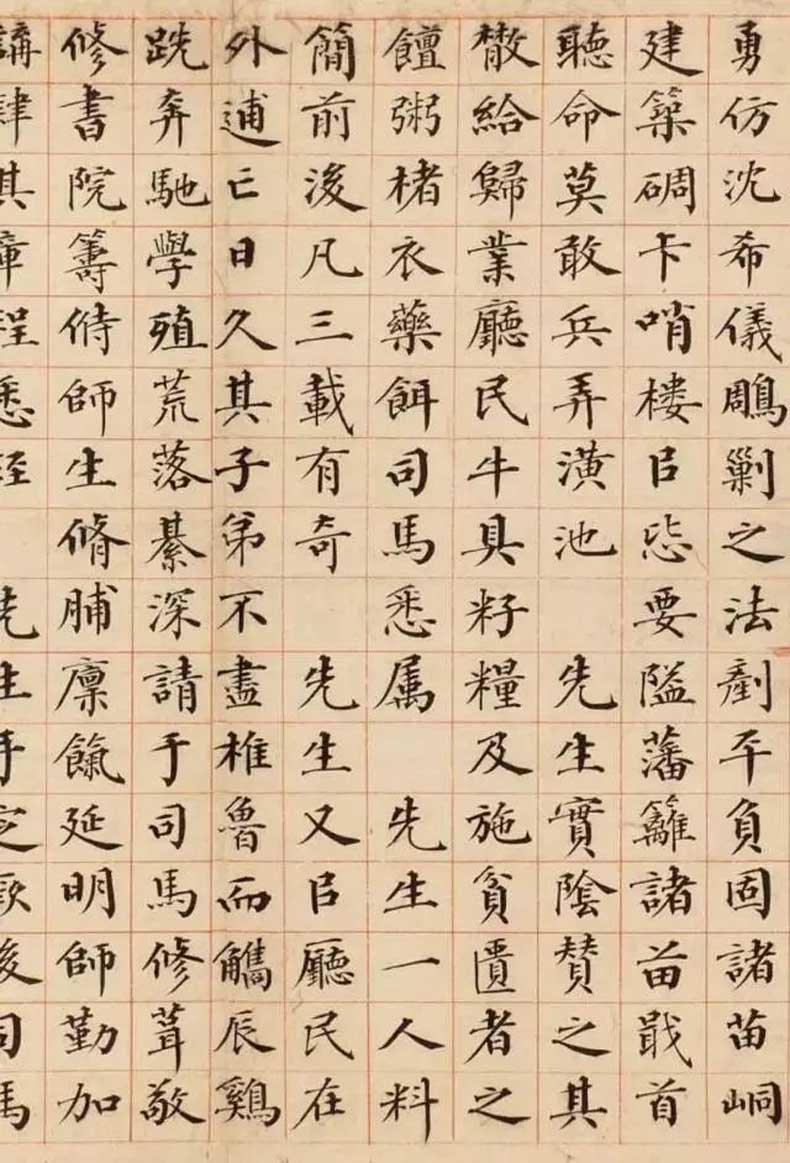 勇仿沈希儀鵰剿之法剷平負固諸苗峒
建築碉卡哨樓㠯毖要隘藩籬諸苗戢首
聽命莫敢兵弄潢池 先生實陰贊之其
散給歸業廳民牛具籽糧及施貧匱者之
饘粥楮衣藥餌司馬悉属 先生一人料
簡前後凡三載有奇 先生又㠯廳民在
外逋亡日久其子弟不盡椎魯而觿辰鷄
跣奔馳學殖荒落綦深請于司馬修葺敬
修書院籌偫師生脩脯廩餼延明師勤加
講肄其章程悉經 先生手定厥後司馬